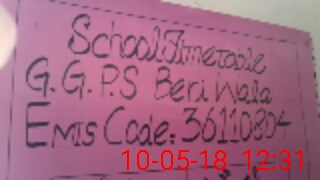 School Timetable
G.G.P.S Beri Wala
Emis Code: 36110804
10-05-18 12:31